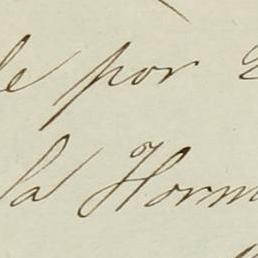 le por
la Horm